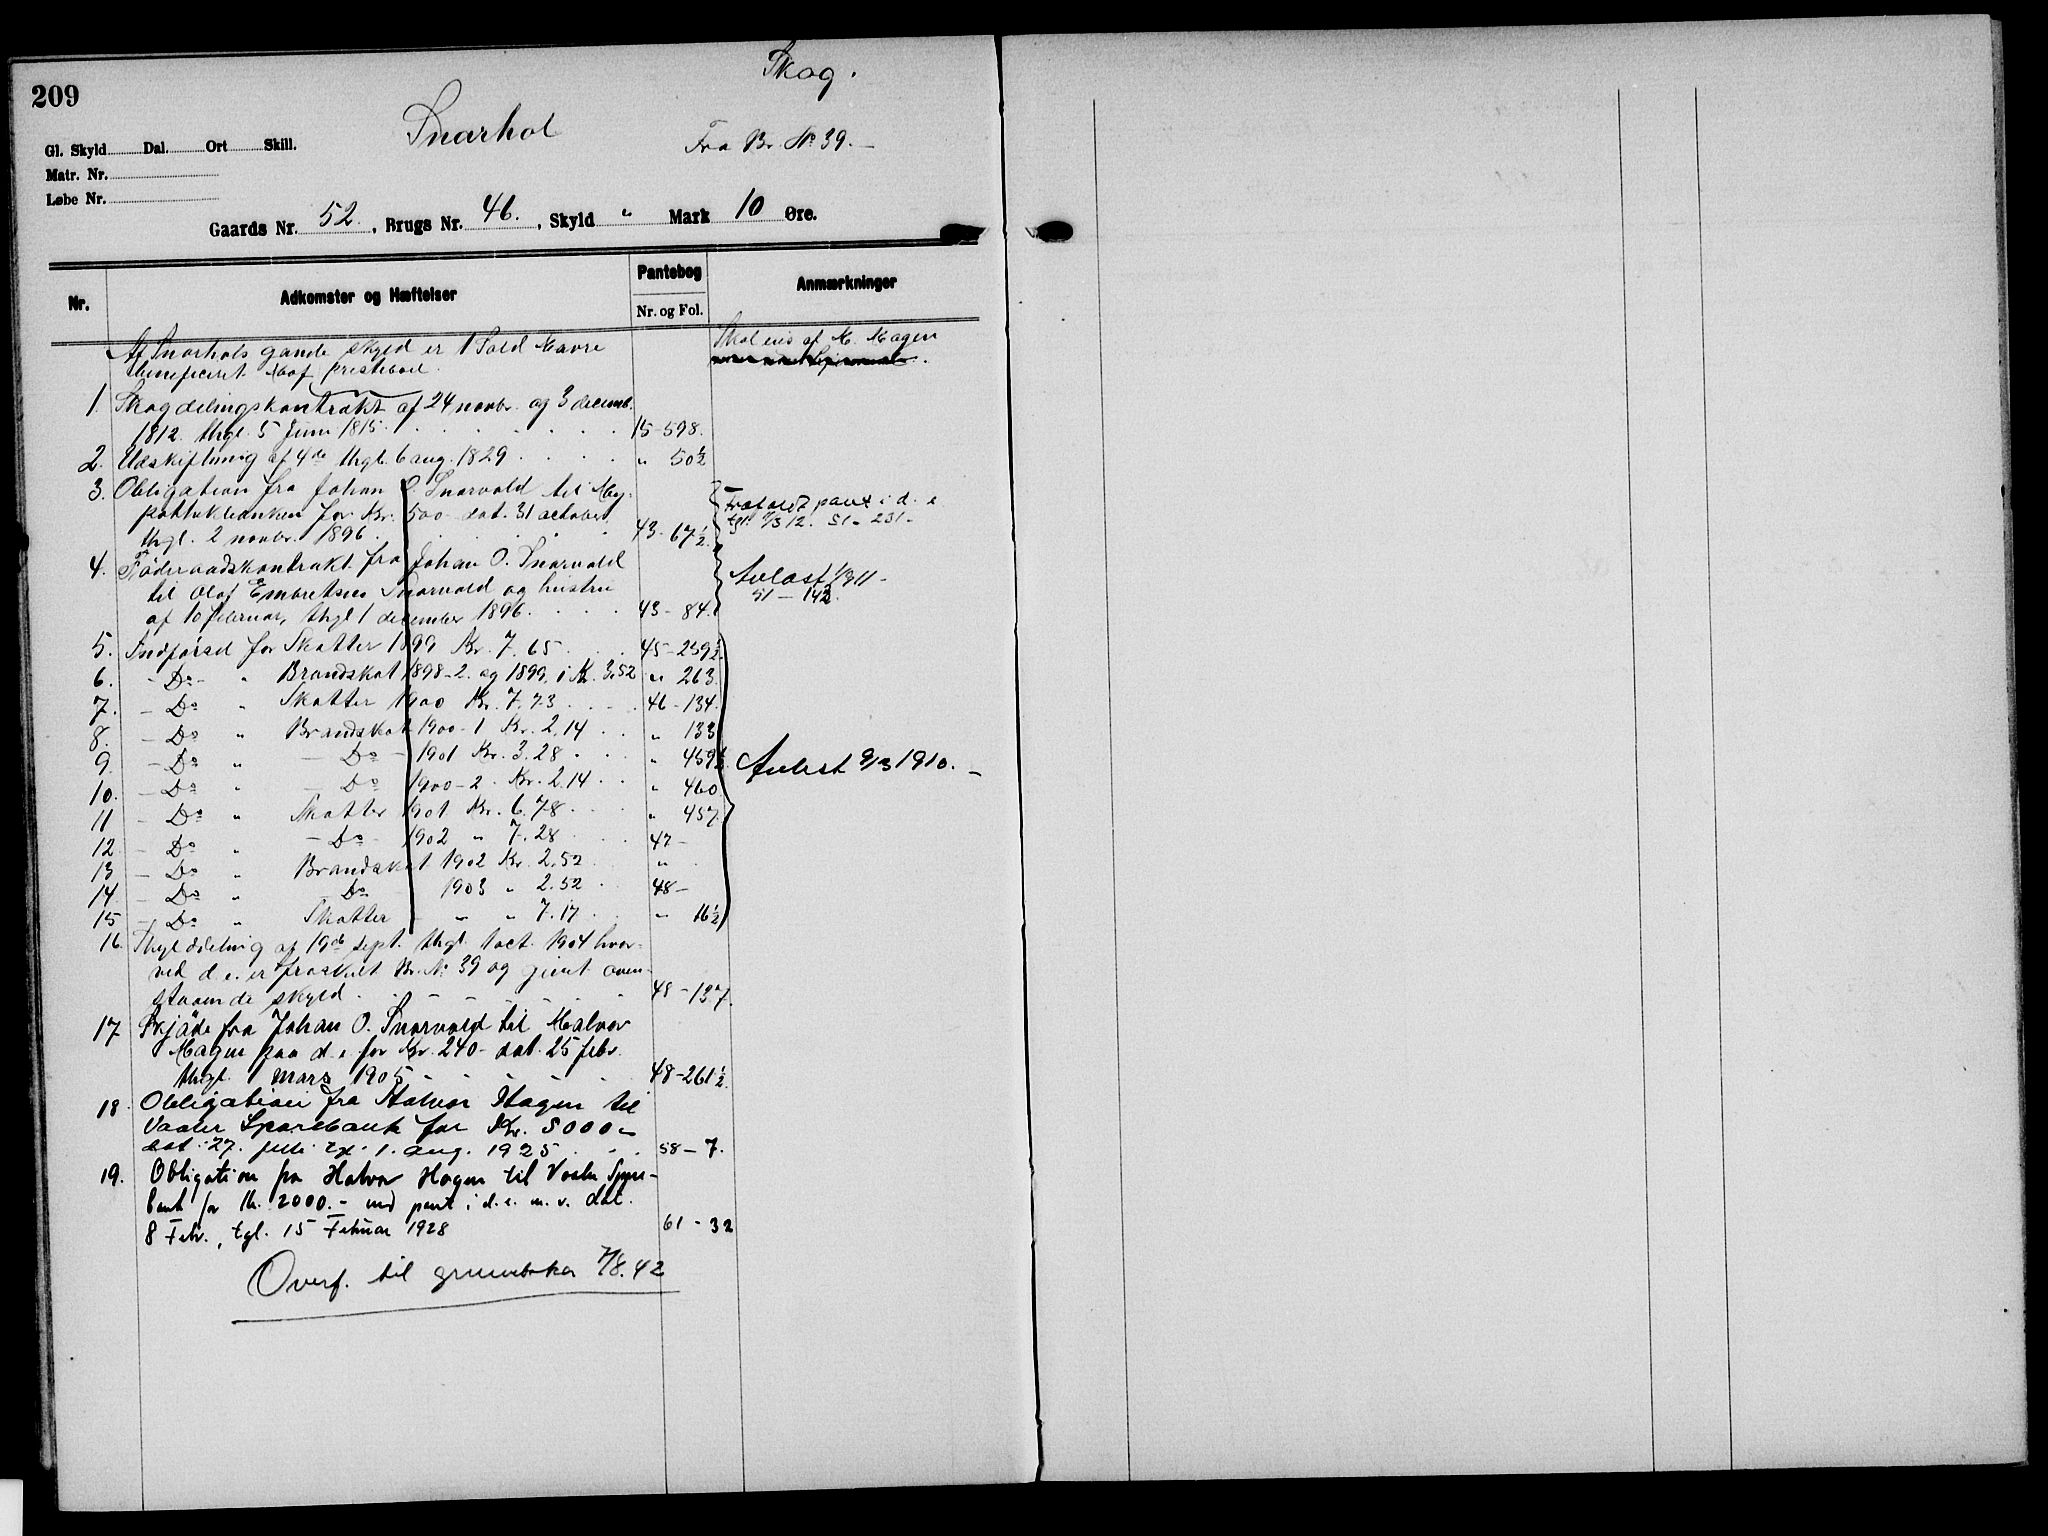 209
Skog.
Snarhol
Fra Br. № 39.—
Gl. Skyld Dal. Ort Skill.
Matr. Nr.
Løbe Nr.
Gaards Nr. 52., Brugs Nr. 46., Skyld " Mark 10 Øre.
Nr. Adkomster og Hæftelser Pantebog Anmærkninger
Nr. og Fol.
Af Snarhols gamle skyld er 1 Sold Havre Skal eies af H. Hagen
beneficeret Hof prestebol.
1. Skogdelingskontrakt af 24 novbr. og 3 decemb.
1812. thgl. 5 Juni 1815. 15-598.
2. Udskiftning af 4de thgl. 6 aug. 1829 " 50½
3. Obligation fra Johan O. Snarvold til Hy-
pothekbanken for Kr. 500 dat. 31 october,
thgl. 2 novbr. 1896. 43-67½
Frafaldt pant i d. e
tgl. 51-231-
4. Føderaadskontrakt fra Johan O. Snarvold
til Olaf Embretsen Snarvold og hustru
af 10 februar, thgl 1 december 1896. 43-84.
Avlæst 1/3 11-
51-142
5. Indførsel for Skatter 1899 Kr. 7.65 45-259½
6. - Do - " Brandskat 1898-2. og 1899, 1 Kr. 3.52 " 263
7. - Do " Skatter 1900 Kr. 7.73 46-134.
8. - Do " Brandskat 1900-1 Kr. 2.14 " 133
9. - Do " - Do - 1901 Kr. 3.28 " 459½ Avlest 9/3 1910.—
10. - Do " - Do 1900-2. Kr. 2.14 " 460
11 - Do " Skatter 1901 Kr. 6.78 " 457.
12 - Do " - Do - 1902 " 7.28 47-
13 - Do " Brandskat 1902 Kr. 2.52 "
14 - Do " Do 1903 " 2.52 48-
15 - Do " Skatter " " 7.17 " 16½
16. Skylddeling af 19de sept. thgl. 1 oct. 1904 hvor-
ved d. e. er fraskilt Br. № 39 og givet oven-
staaende skyld. 48-137.
17 Skjøde fra Johan O. Snarvold til Halvor
Hagen paa d. e. for Kr. 240- dat. 25 febr.
thgl. 1 mars 1905 48-261½
18. Obligation fra Halvor Hagen til
Vaaler Sparebank for Kr. 5000-
dat. 27. juli tgl. 1. aug. 1925 58-7.
19. Obligation fra Halvor Hagen til Vaaler Spare-
bank for Kr. 2000.- med pant i d. e. m. v. dat.
8 Febr., tgl. 15 Februar 1928 61-32
Overf. til grunnboka 7/8.42